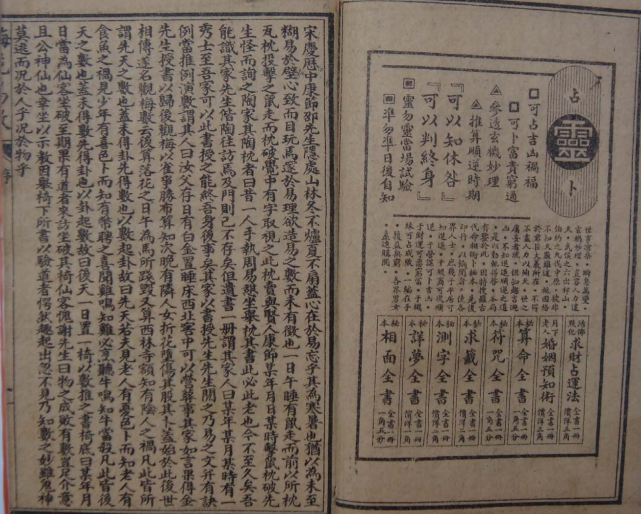 占靈卜
可占吉凶禍福
可卜富貴窮通
參透玄機妙理
推算順逆時期
『可以知休咎』
『可以判終身』
靈勿靈當場試驗
準勿準日後自知
活佛現化 求財占運法 全書一冊
月下老人 婚姻預知術 全書一冊
秘本 算命全書 全書一冊
秘本 符咒全書 全書一冊
秘本 求籤全書 全書一冊
秘本 測字全書 全書一冊
秘本 詳夢全書 全書一冊
秘本 相面全書 全書一冊
宋慶歷中康節邵先生隱處山林冬不爐夏不扇蓋心在於易忘乎其為寒暑也猶以為未至
糊易於壁心致而目玩焉邃於易理欲造易之數而未有徵也一日午睡有鼠走而前以所枕
瓦枕投擊之鼠走而枕破覺中有字取視之此枕賣與賢人康節某年月日某時擊鼠枕破先
生怪而詢之陶家其陶枕者曰昔一人手執周易憩坐舉枕其書此必此老也今不至久矣吾
能識其家先生偕陶往訪焉及門則已不存矣但遺書一冊謂其家人曰某年某月某時有一
秀士至吾家可以此書授之能終吾身後事矣其家以書授先生先生閱之乃易之文并有訣
例當推例演數謂其人曰汝父存日有白金置睡床西北窖中可以營葬事其家如言果得金
先生授書以歸後觀梅以雀爭勝布算知次晚有隣人女折花墮傷其股其卜蓋始於此後世
相傳遂名觀梅數云後算落花之日午為馬所踐毀又算西林寺額知有陰人之禍凡此皆所
謂先天之數也蓋未得卦先得數也以數起卦故曰先天若夫見老人有憂色卜而知老人有
食魚之禍見少年有喜色卜而知有幣聘之喜聞雞鳴知雞必烹聽牛鳴知牛當殺凡此皆後
天之數也蓋未得數先得卦也以卦起數故曰後天一日置一椅以數推之書椅底曰某年月
日當為仙客坐破至期果有道者來訪坐破其椅仙客愧謝先生曰物之成敗有數豈足介意
且公神仙也幸坐以示教因舉椅下所書以驗道者愕然趨起出忽不見乃知數之妙雖鬼神
莫逃而況於人乎況於物乎